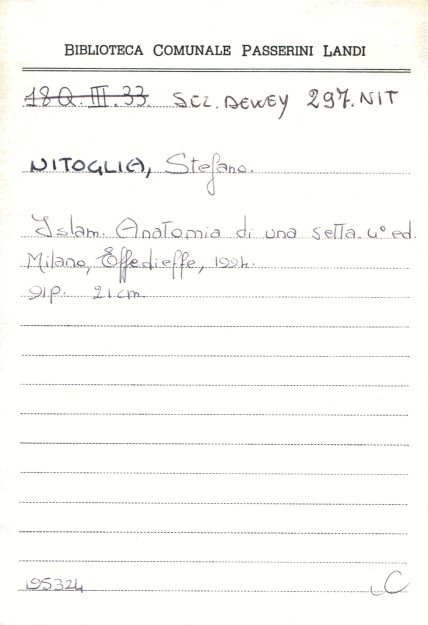 BIBLIOTECA COMUNALE PASSERINI LANDI
18Q.III.33 SCZ. DEWEY 297.NIT
NITOGLIA, Stefano.
Islam. Anatomia di una setta. 4° ed.
Milano, Effedieffe, 1994.
91p. 21cm.
195324
C